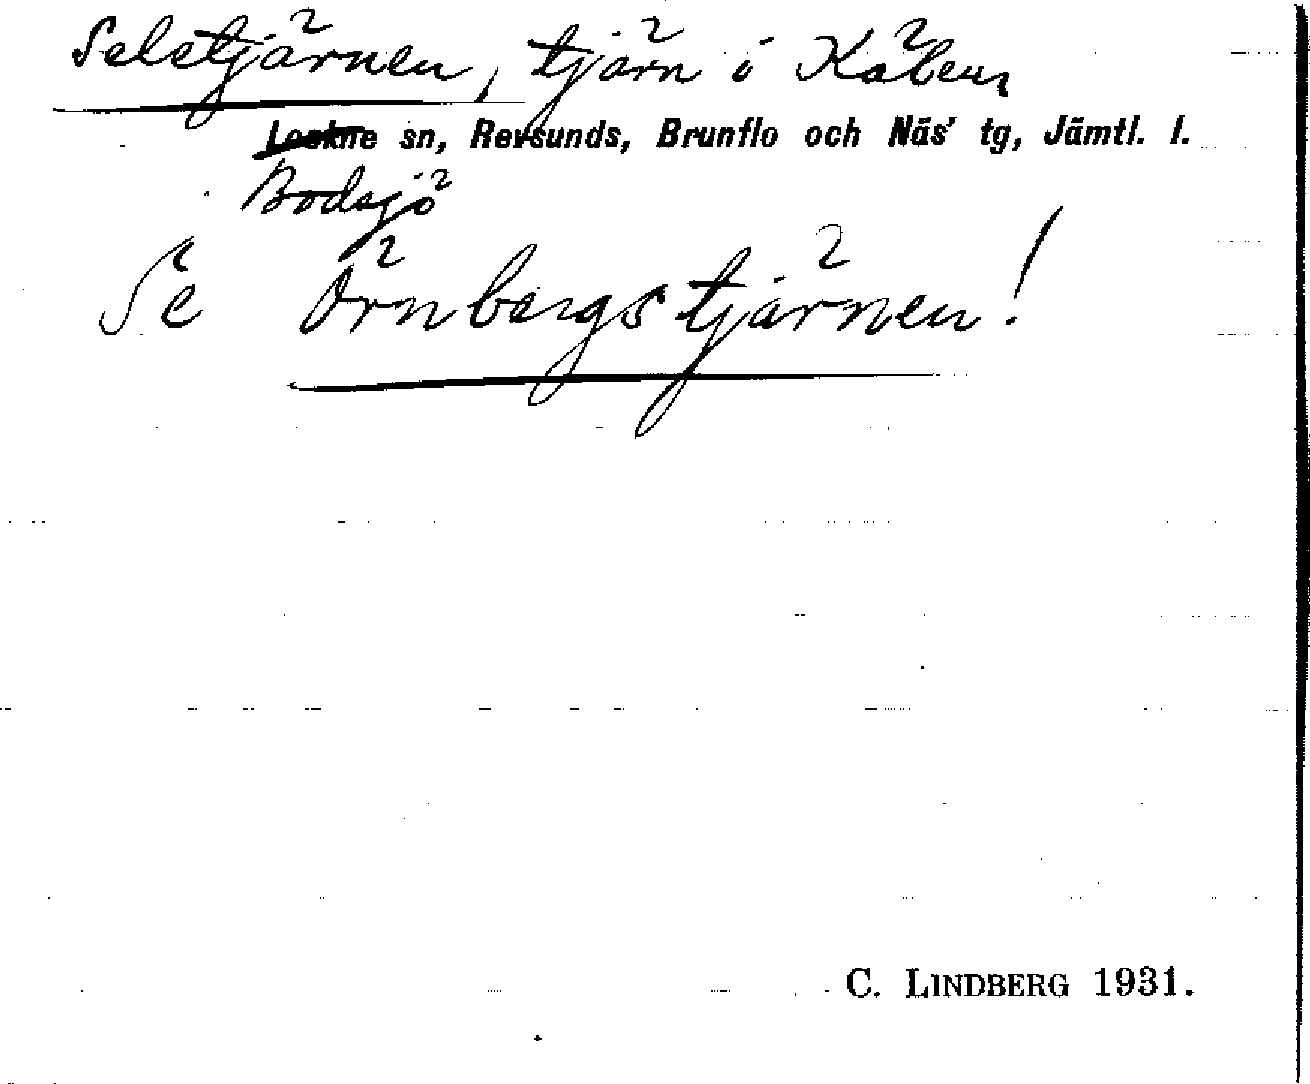 Selstjärnen, tjärn i Kälen
Lockne sn, Revsunds, Brunflo och Näs' tg, Jämtl. l.
Bodsjö
Se Örnbergstjärnen!
C. LINDBERG 1931.